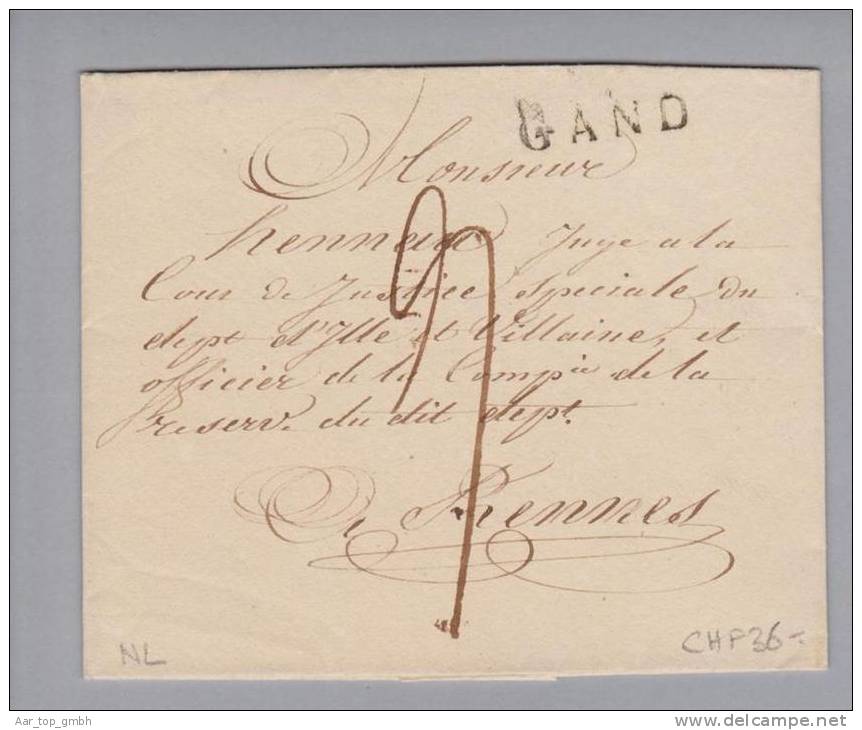 GAND
Monsieur
hennequ Juge a la
Cour de Justice speciale du
dept d'Ille et Villaine, et
officier de la Compie de la
reserve du dit dept.
A Rennes
NL
CHF 36-
Aar_top_gmbh
delcampe.net